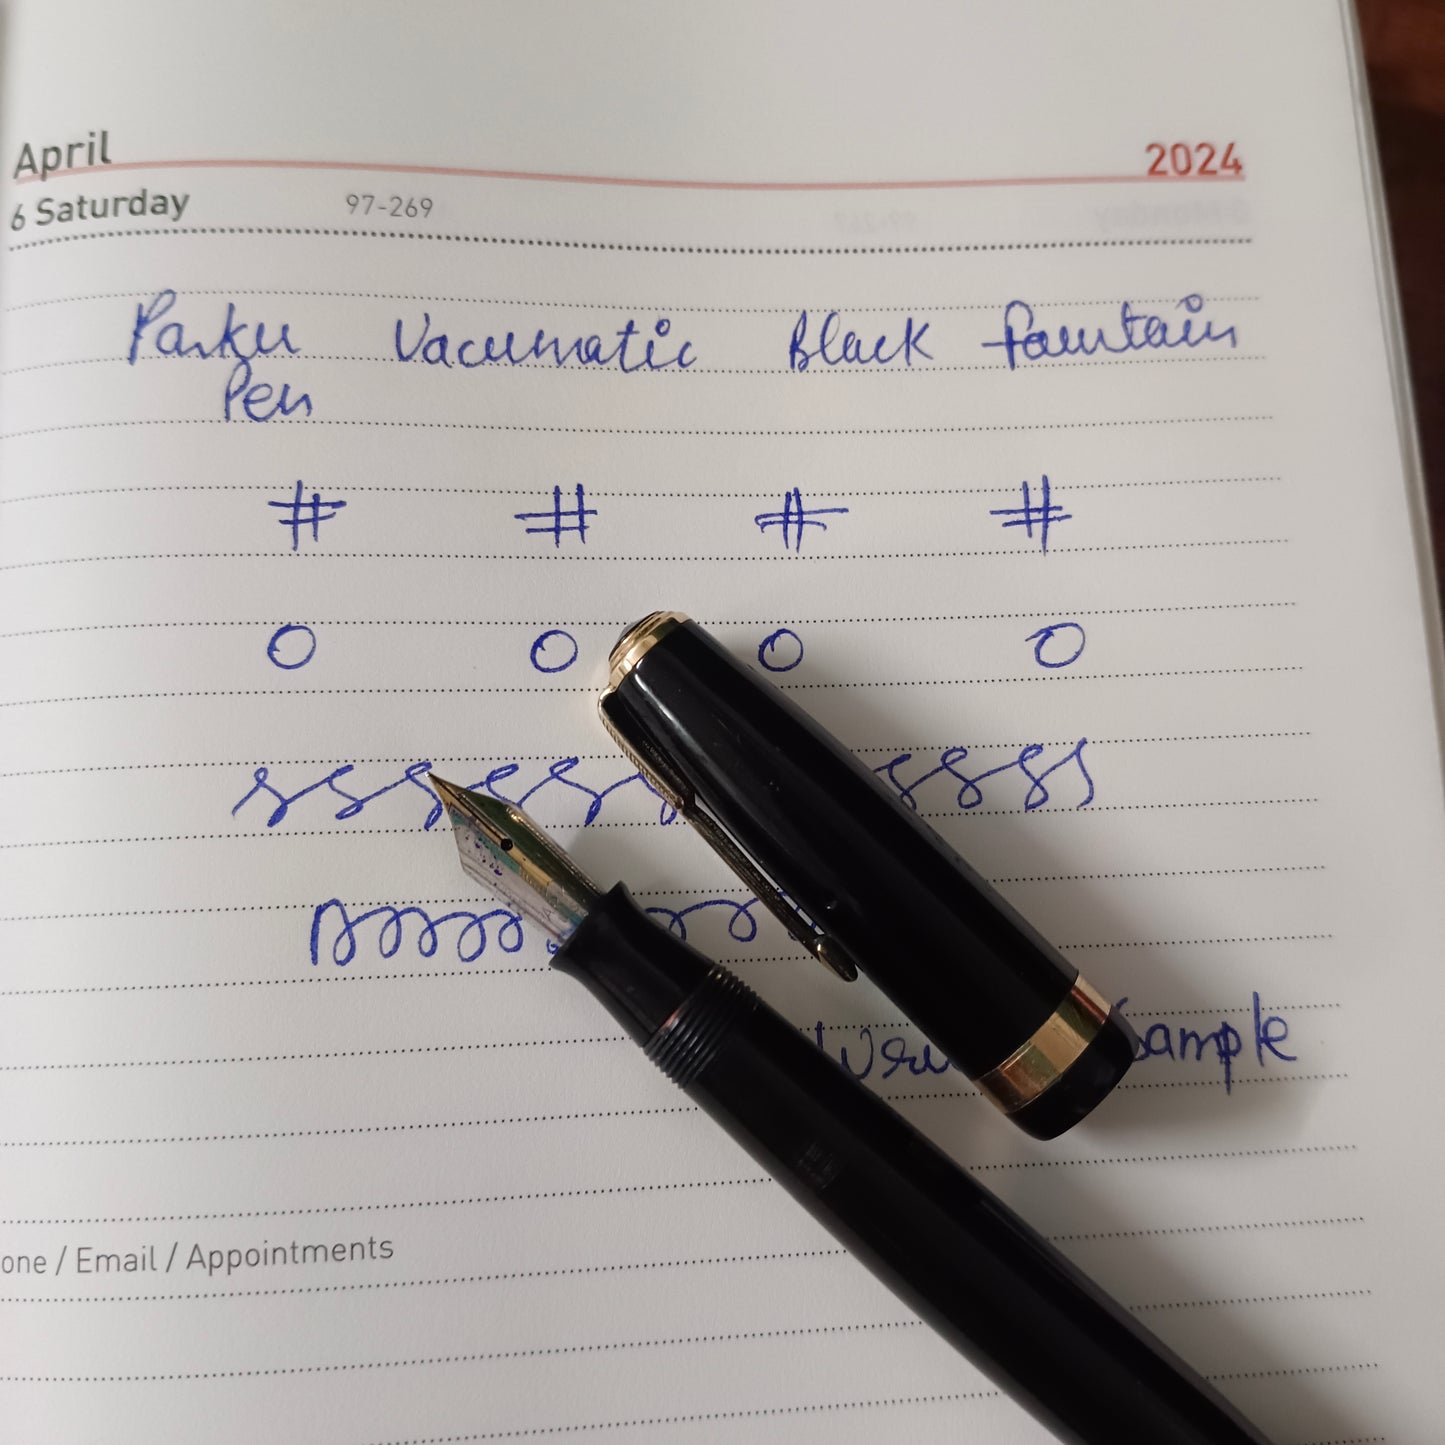 April 2024
6 Saturday 97-269
Parker Vacumatic Black fountain
Pen
# # # #
O O O O
Sample
one / Email / Appointments